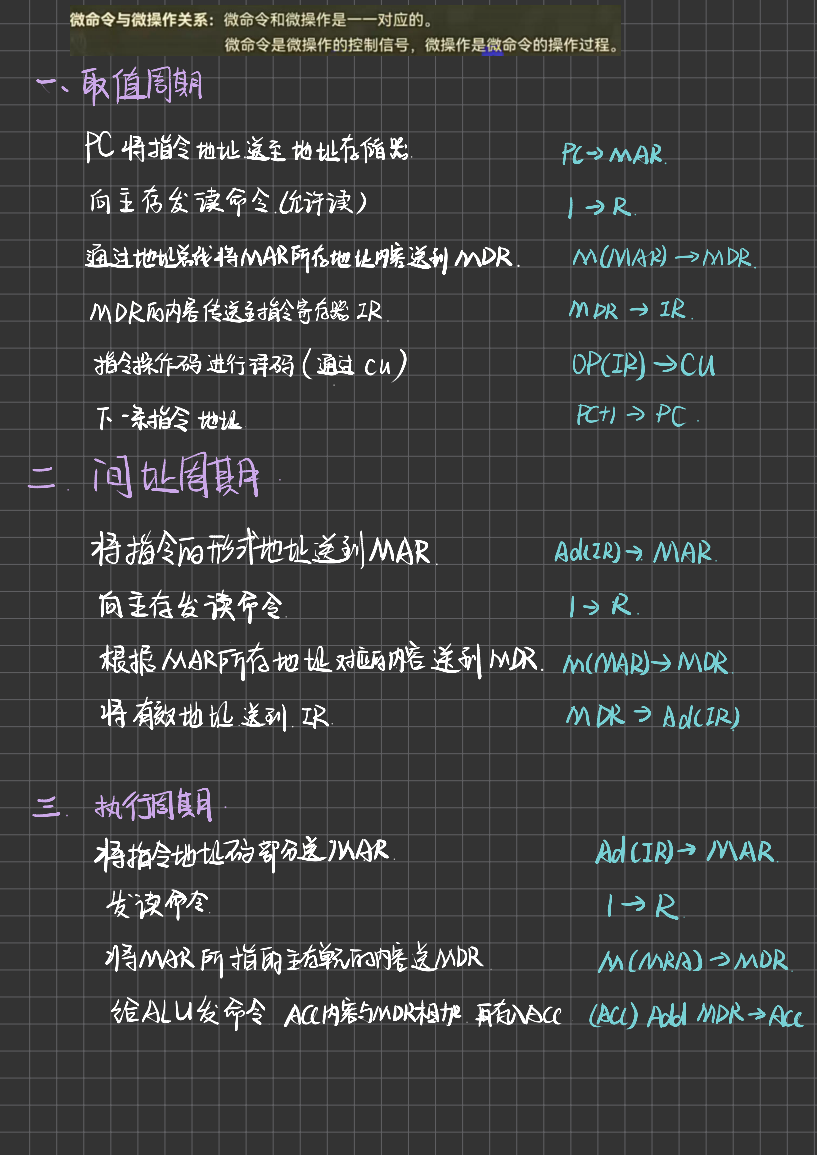 微命令与微操作关系：微命令和微操作是一一对应的。
微命令是微操作的控制信号，微操作是微命令的操作过程。
一、取值周期
PC将指令地址送至地址存储器 PC→MAR.
向主存发读命令.(允许读) 1→R.
通过地址总线将MAR所存地址内容送到MDR. M(MAR)→MDR.
MDR的内容传送至指令寄存器IR. MDR→IR.
指令操作码进行译码(通过CU) OP(IR)→CU
下一条指令地址 PC+1→PC.
二.间址周期.
将指令的形式地址送到MAR. Ad(IR)→MAR.
向主存发读命令. 1→R.
根据MAR所存地址对应的内容送到MDR. M(MAR)→MDR.
将有效地址送到IR. MDR→Ad(IR)
三.执行周期.
将指令地址码部分送MAR. Ad(IR)→MAR.
发读命令. 1→R.
将MAR所指的主存单元的内容送MDR M(MRA)→MDR.
给ALU发命令 ACC内容与MDR相加.再存入ACC (ACC) Add MDR→Acc